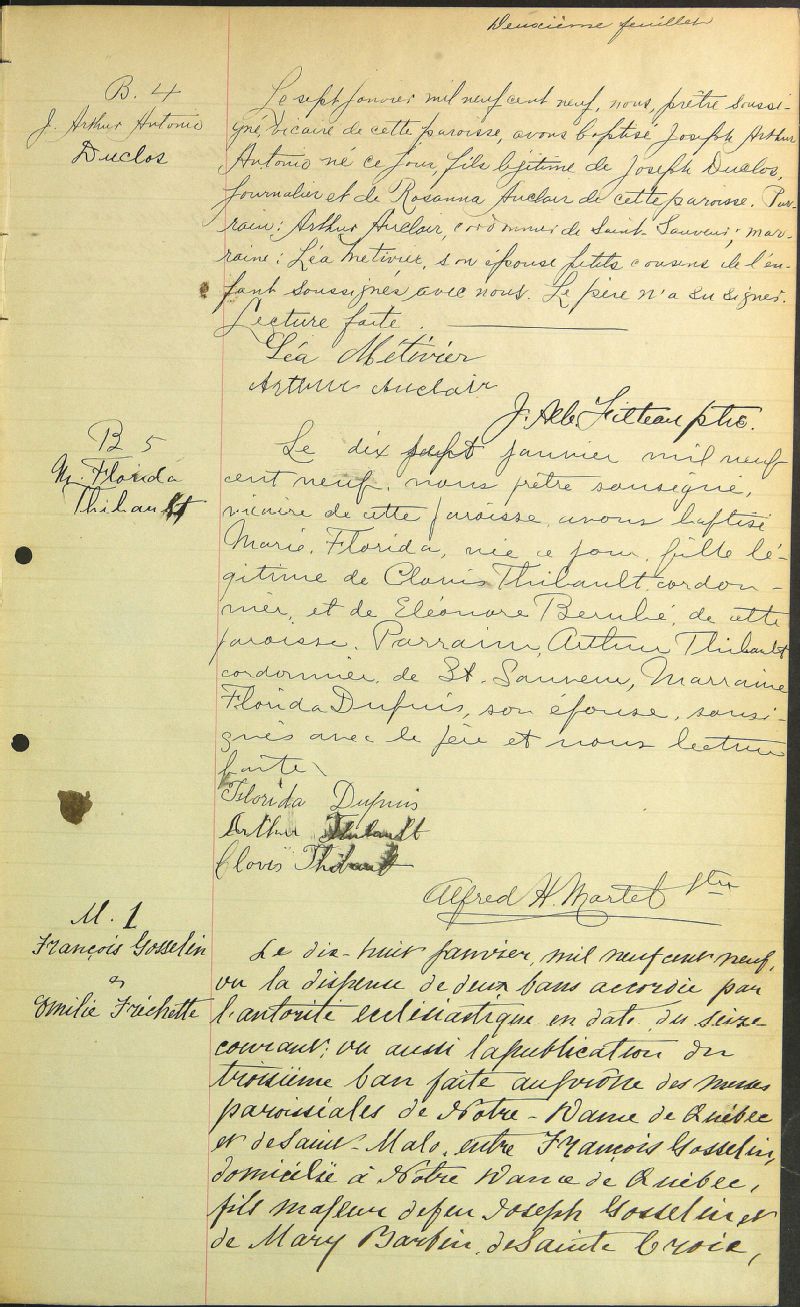 Deuxième feuillet
B. 4
J. Arthur Antonio
Duclos
Le sept janvier mil neuf cent neuf, nous, prêtre soussi-
gné, vicaire de cette paroisse, avons baptisé Joseph Arthur
Antonio né ce jour, fils légitime de Joseph Duclos,
journalier et de Rosanna Auclair de cette paroisse. Par-
rain: Arthur Auclair, cordonnier de Saint-Sauveur; mar-
raine: Léa Metivier, son épouse petits cousins de l'en-
fant soussignés avec nous. Le père n'a su signer.
Lecture faite.
Léa Métivier
Arthur Auclair
J. Alb. Filteau ptre.
B 5
M. Florida
Thibault
Le dix sept janvier mil neuf
cent neuf, nous prêtre soussigné,
vicaire de cette paroisse, avons baptisé
Marie, Florida, née ce jour, fille lé-
gitime de Clovis Thibault, cordon-
nier, et de Eléonore Berubé, de cette
paroisse. Parrain, Arthur Thibault
cordonnier, de St. Sauveur, Marraine
Florida Dupuis, son épouse, sousi-
gnés avec le père et nous lecture
faite
Florida Dupuis
Arthur Thibault
Clovis Thibault
Alfred H. Martel ptre
M. 1
François Gosselin
&
Emilie Fréchette
Le dix-huit janvier, mil neuf cent neuf,
vu la dispense de deux bans accordée par
l'autorité ecclésiastique en date du seize
courant; vu aussi la publication du
troisième ban faite au prône des messes
paroissiales de Notre-Dame de Québec
et de Saint-Malo, entre François Gosselin,
domicilié à Notre Dame de Québec,
fils majeur de feu Joseph Gosselin et
de Mary Barbin, de Sainte Croix,